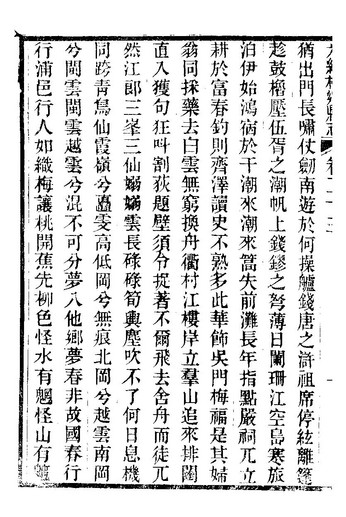 猶出門長嘯仗劍南遊於何操艫錢唐之滸祖席停絃離篷
趁鼓榜壓伍胥之潮帆上錢鏐之弩薄日闌珊江空島寒旅
泊伊始鴻㣲于干潮來潮來篙失前灘長年指點嚴祠兀立
耕於富春釣則齊澤讀史不熟多此華飾吳門梅福是其婦
翁同採藥去白雲無窮換舟衢村江樓岸立羣山追來排闥
直入獲句狂呌割荻題壁須令捉著不爾飛去舍舟而徒兀
然江郎三峯三仙嫋嫋雲長碌碌筍輿塵吹不了何日息機
同跨青鳥仙霞嶺兮䨲雯高低岡兮無痕北岡兮越雲南岡
兮閩雲閩雲越雲兮混不可分夢八他鄉夢春非故國春行
行浦邑行人如織梅讓桃開蕉先柳色怪水有魍怪山有